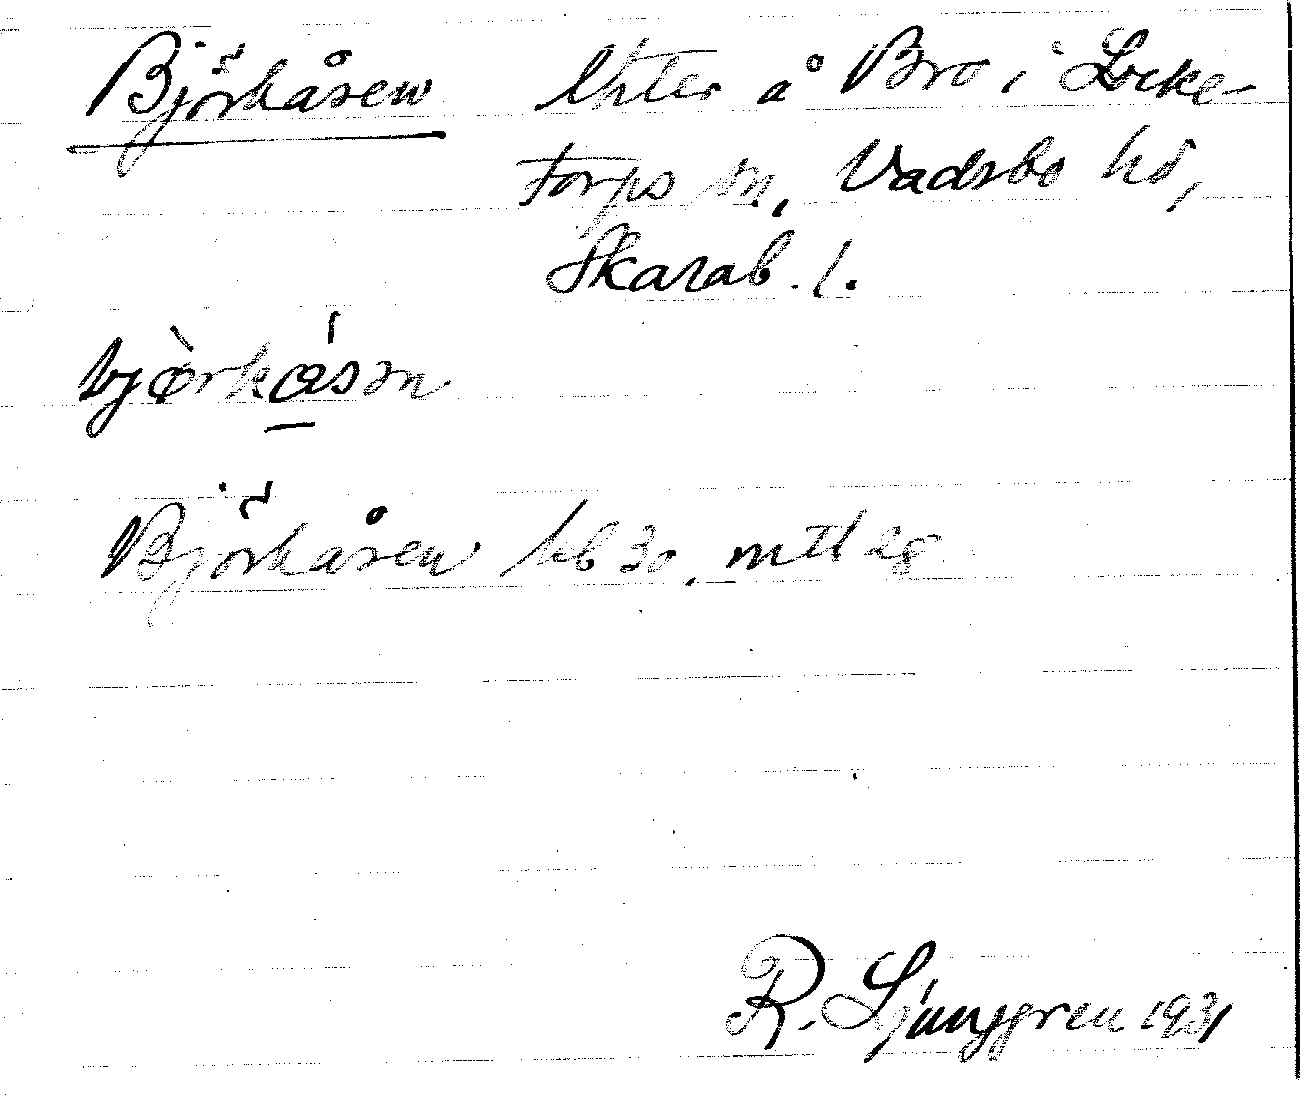 Björkåsen Unter å Bro i Locke-
torps sn, Vadsbo hd,
Skarab. l.
bjòrkåsm
Björkåsen hb 30, mtl 28
R. Ljunggren 1931